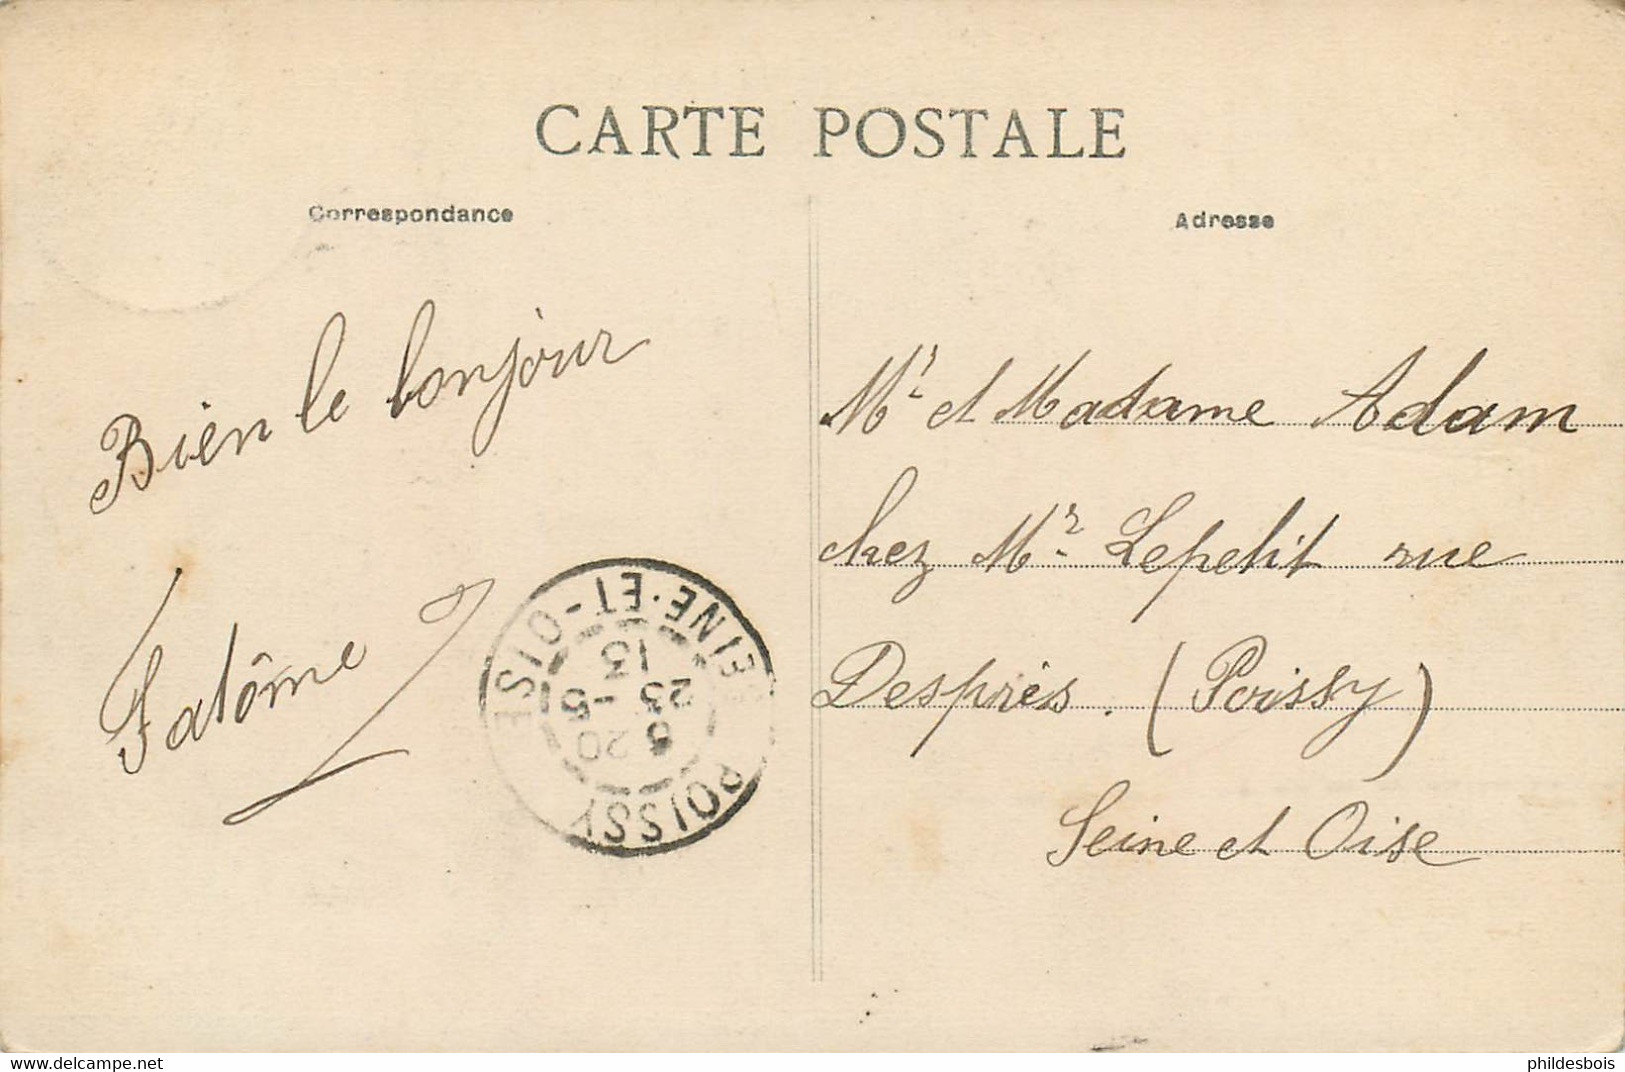 CARTE POSTALE
Correspondance
Adresse
Bien le bonjour
Fatôme
Mr et Madame Adam
chez Mr Lepetit rue
Desprès. (Poissy)
Seine et Oise
POISSY
SEINE-ET-OISE
23 -5
13
delcampe.net
phildesbois